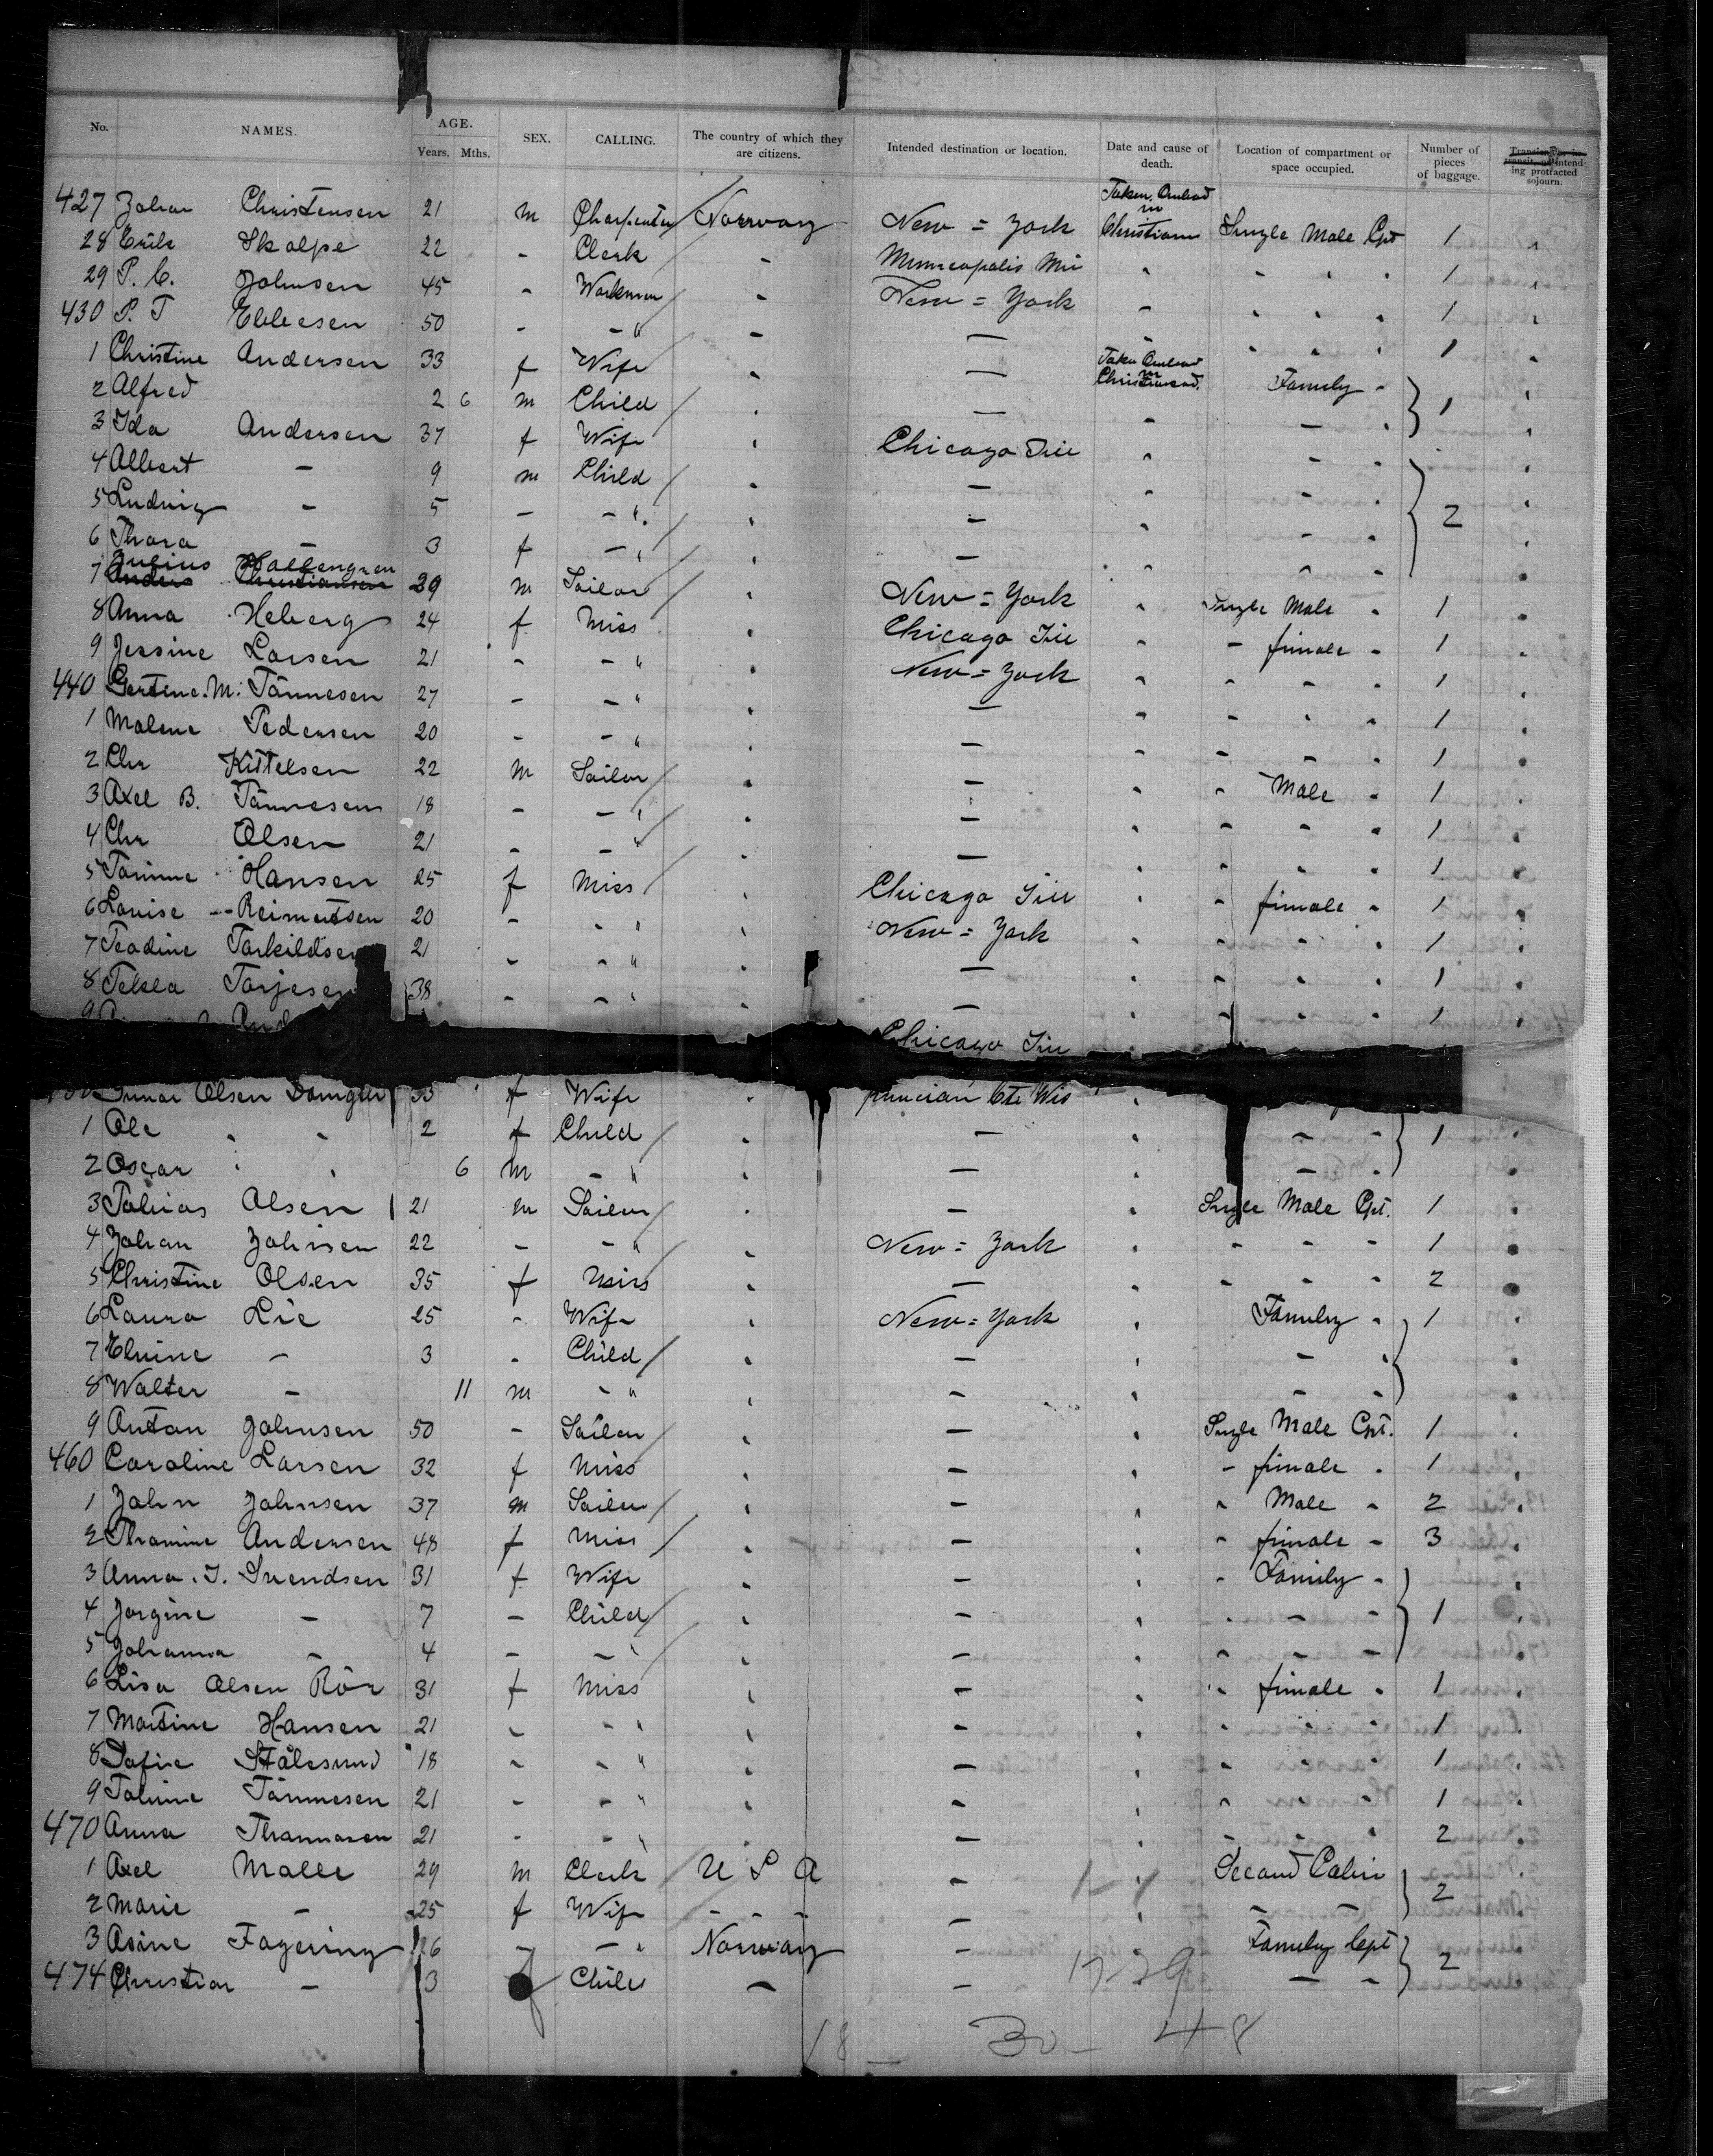 No. NAMES. AGE. Years. Mths. SEX. CALLING. The country of which they are citizens. Intended destination or location. Date and cause of death. Location of compartment or space occupied. Number of pieces of baggage. sojourn.
427 Johan Christensen 21 m Charpenter Norway New = York Taken Onboad in Christians Single Male Cpt 1 "
28 Erik Skolpe 22 - Clerk " Minneapolis Min " " " " 1 "
29 P. C. Johnsen 45 - Workman " New = York " " " " 1 "
430 P. T Ebbesen 50 - - " " — " " " " 1 "
1 Christine Andersen 33 f Wife " — Taken Onboad in Christiansand. Family "
2 Alfred 2 6 m Child " — " — " 1 "
3 Ida Andersen 37 f Wife " Chicago Ill " - "
4 Albert - 9 m Child " — " - "
5 Ludvig - 5 - - " " — " - " 2 "
6 Thora - 3 f - " " — " - "
7 Anders Christiansen Julius Hallengren 29 m Sailor " New = York " Single Male " 1 "
8 Anna Heberg 24 f Miss " Chicago Ill " - female " 1 "
9 Jessine Larsen 21 - - " " New = York " - " " 1 "
440 Gertine. M. Tönnesen 27 - - " " — " - " " 1 "
1 Malene Pedersen 20 - - " " — " - " " 1 "
2 Chr Kittelsen 22 m Sailor " — " " Male " 1 "
3 Axel B. Tönnesen 18 - - " " — " " " " 1 "
4 Chr Olsen 21 - - " " — " " " " 1 "
5 Tomine Hansen 25 f Miss " Chicago Ill " " female " 1 "
6 Louise Reimertsen 20 - - " " New = York " " " " 1 "
7 Teodine Torkildsen 21 - - " " — " " " " 1 "
8 Tekla Torjesen 38 - - " " — " " " " 1 "
9 And Chicago Ill
Olsen 33 f Wife " Wis "
1 Ole " " 2 f Child " — " - " 1 "
2 Oscar " " 6 m - " " — " - " "
3 Tobias Olsen 21 m Sailor " — " Single Male Cpt. 1 "
4 Johan Johnsen 22 - - " " New = York " - - - 1 "
5 Christine Olsen 35 f Miss " — " - - - 2 "
6 Laura Lie 25 - Wife " New = York " Family " 1 "
7 Elvine - 3 - Child " — " - " "
8 Walter - 11 m - " " — " - " "
9 Anton Johnsen 50 - Sailor " — " Single Male Cpt. 1 "
460 Caroline Larsen 32 f Miss " — " - female " 1 "
1 John Johnsen 37 m Sailor " — " " Male " 2 "
2 Thomine Andersen 48 f Miss " — " " female - 3 "
3 Anna. T. Svendsen 31 f Wife " — " " Family - "
4 Jorgine - 7 - Child " — " " - - 1 "
5 Johanna - 4 - - " " — " " - - "
6 Lisa Olsen Rör 31 f Miss " — " " female " 1 "
7 Martine Hansen 21 - - " " — " " " " 1 "
8 Sofie Stålesund 18 - - " " — " " " " 1 "
9 Tomine Tönnesen 21 - - " " — " " " " 1 "
470 Anna Thomasen 21 - - " " — " " " " 2 "
1 Axel Malle 29 m Clerk U S A — " Second Cabin
2 Marie - 25 f Wife - - - — " - - 2
3 Asine Fagering 26 - - " Norway — Family Cpt 2
474 Christian - 3 f Child — — 17-29 - -
18 — 30 — 48